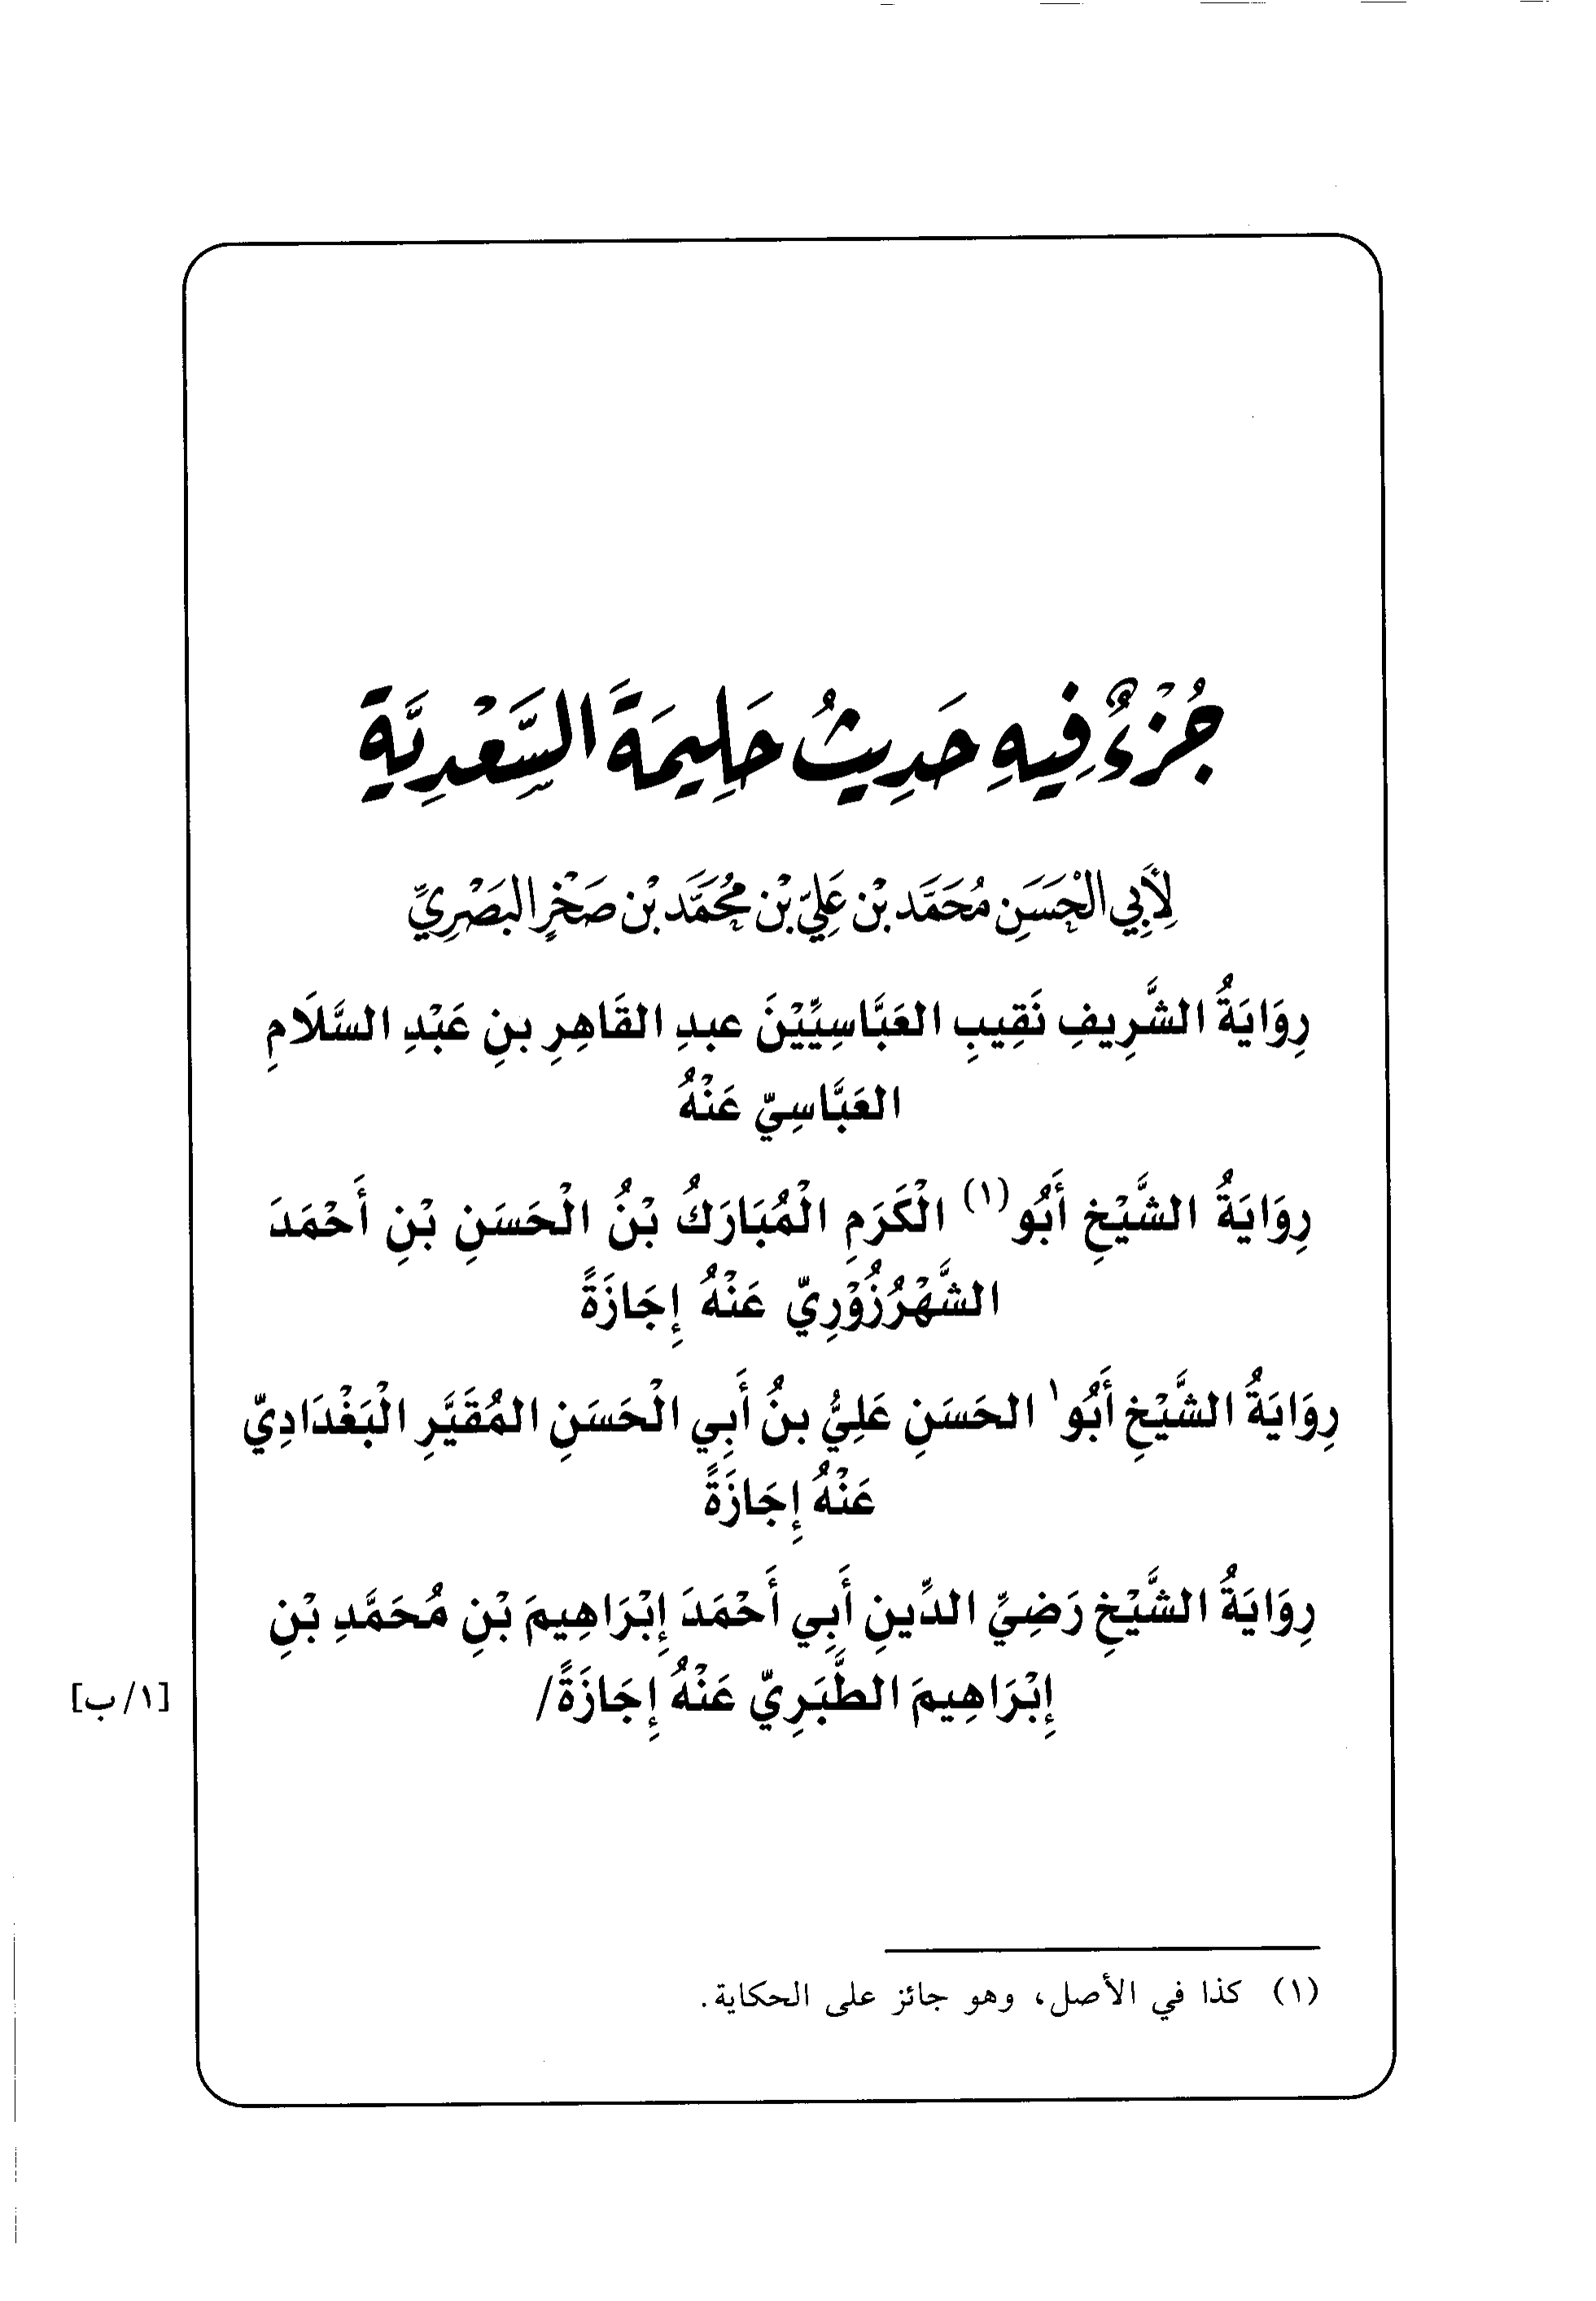 جُزْءٌ فِيهِ حَدِيثُ حَلِيمَةَ السَّعْدِيَّةِ
لِأَبِي الْحَسَنِ مُحَمَّد بْن عَلِيّ بْن مُحَمَّد بْن صَخْرٍ البَصْرِيِّ
رِوَايَةُ الشَّرِيفِ نَقِيبِ العَبَّاسِيِّيْنَ عبدِ القَاهِرِ بنِ عَبْدِ السَّلَامِ
العَبَّاسِيّ عَنْهُ
رِوَايَةُ الشَّيْخِ أَبُو(١) الْكَرَمِ الْمُبَارَكُ بْنُ الْحَسَنِ بْنِ أَحْمَدَ
الشَّهْرُزُوْرِيّ عَنْهُ إِجَازَةً
رِوَايَةُ الشَّيْخِ أَبُو١ الحَسَنِ عَلِيُّ بنُ أَبِي الْحَسَنِ المُقَيَّرِ الْبَغْدَادِيّ
عَنْهُ إِجَازَةً
رِوَايَةُ الشَّيْخِ رَضِيِّ الدِّينِ أَبِي أَحْمَدَ إِبْرَاهِيمَ بْنِ مُحَمَّدِ بْنِ
إِبْرَاهِيمَ الطَّبَرِيّ عَنْهُ إِجَازَةً/
[١/ب]
(١) كذا في الأصل، وهو جائز على الحكاية.